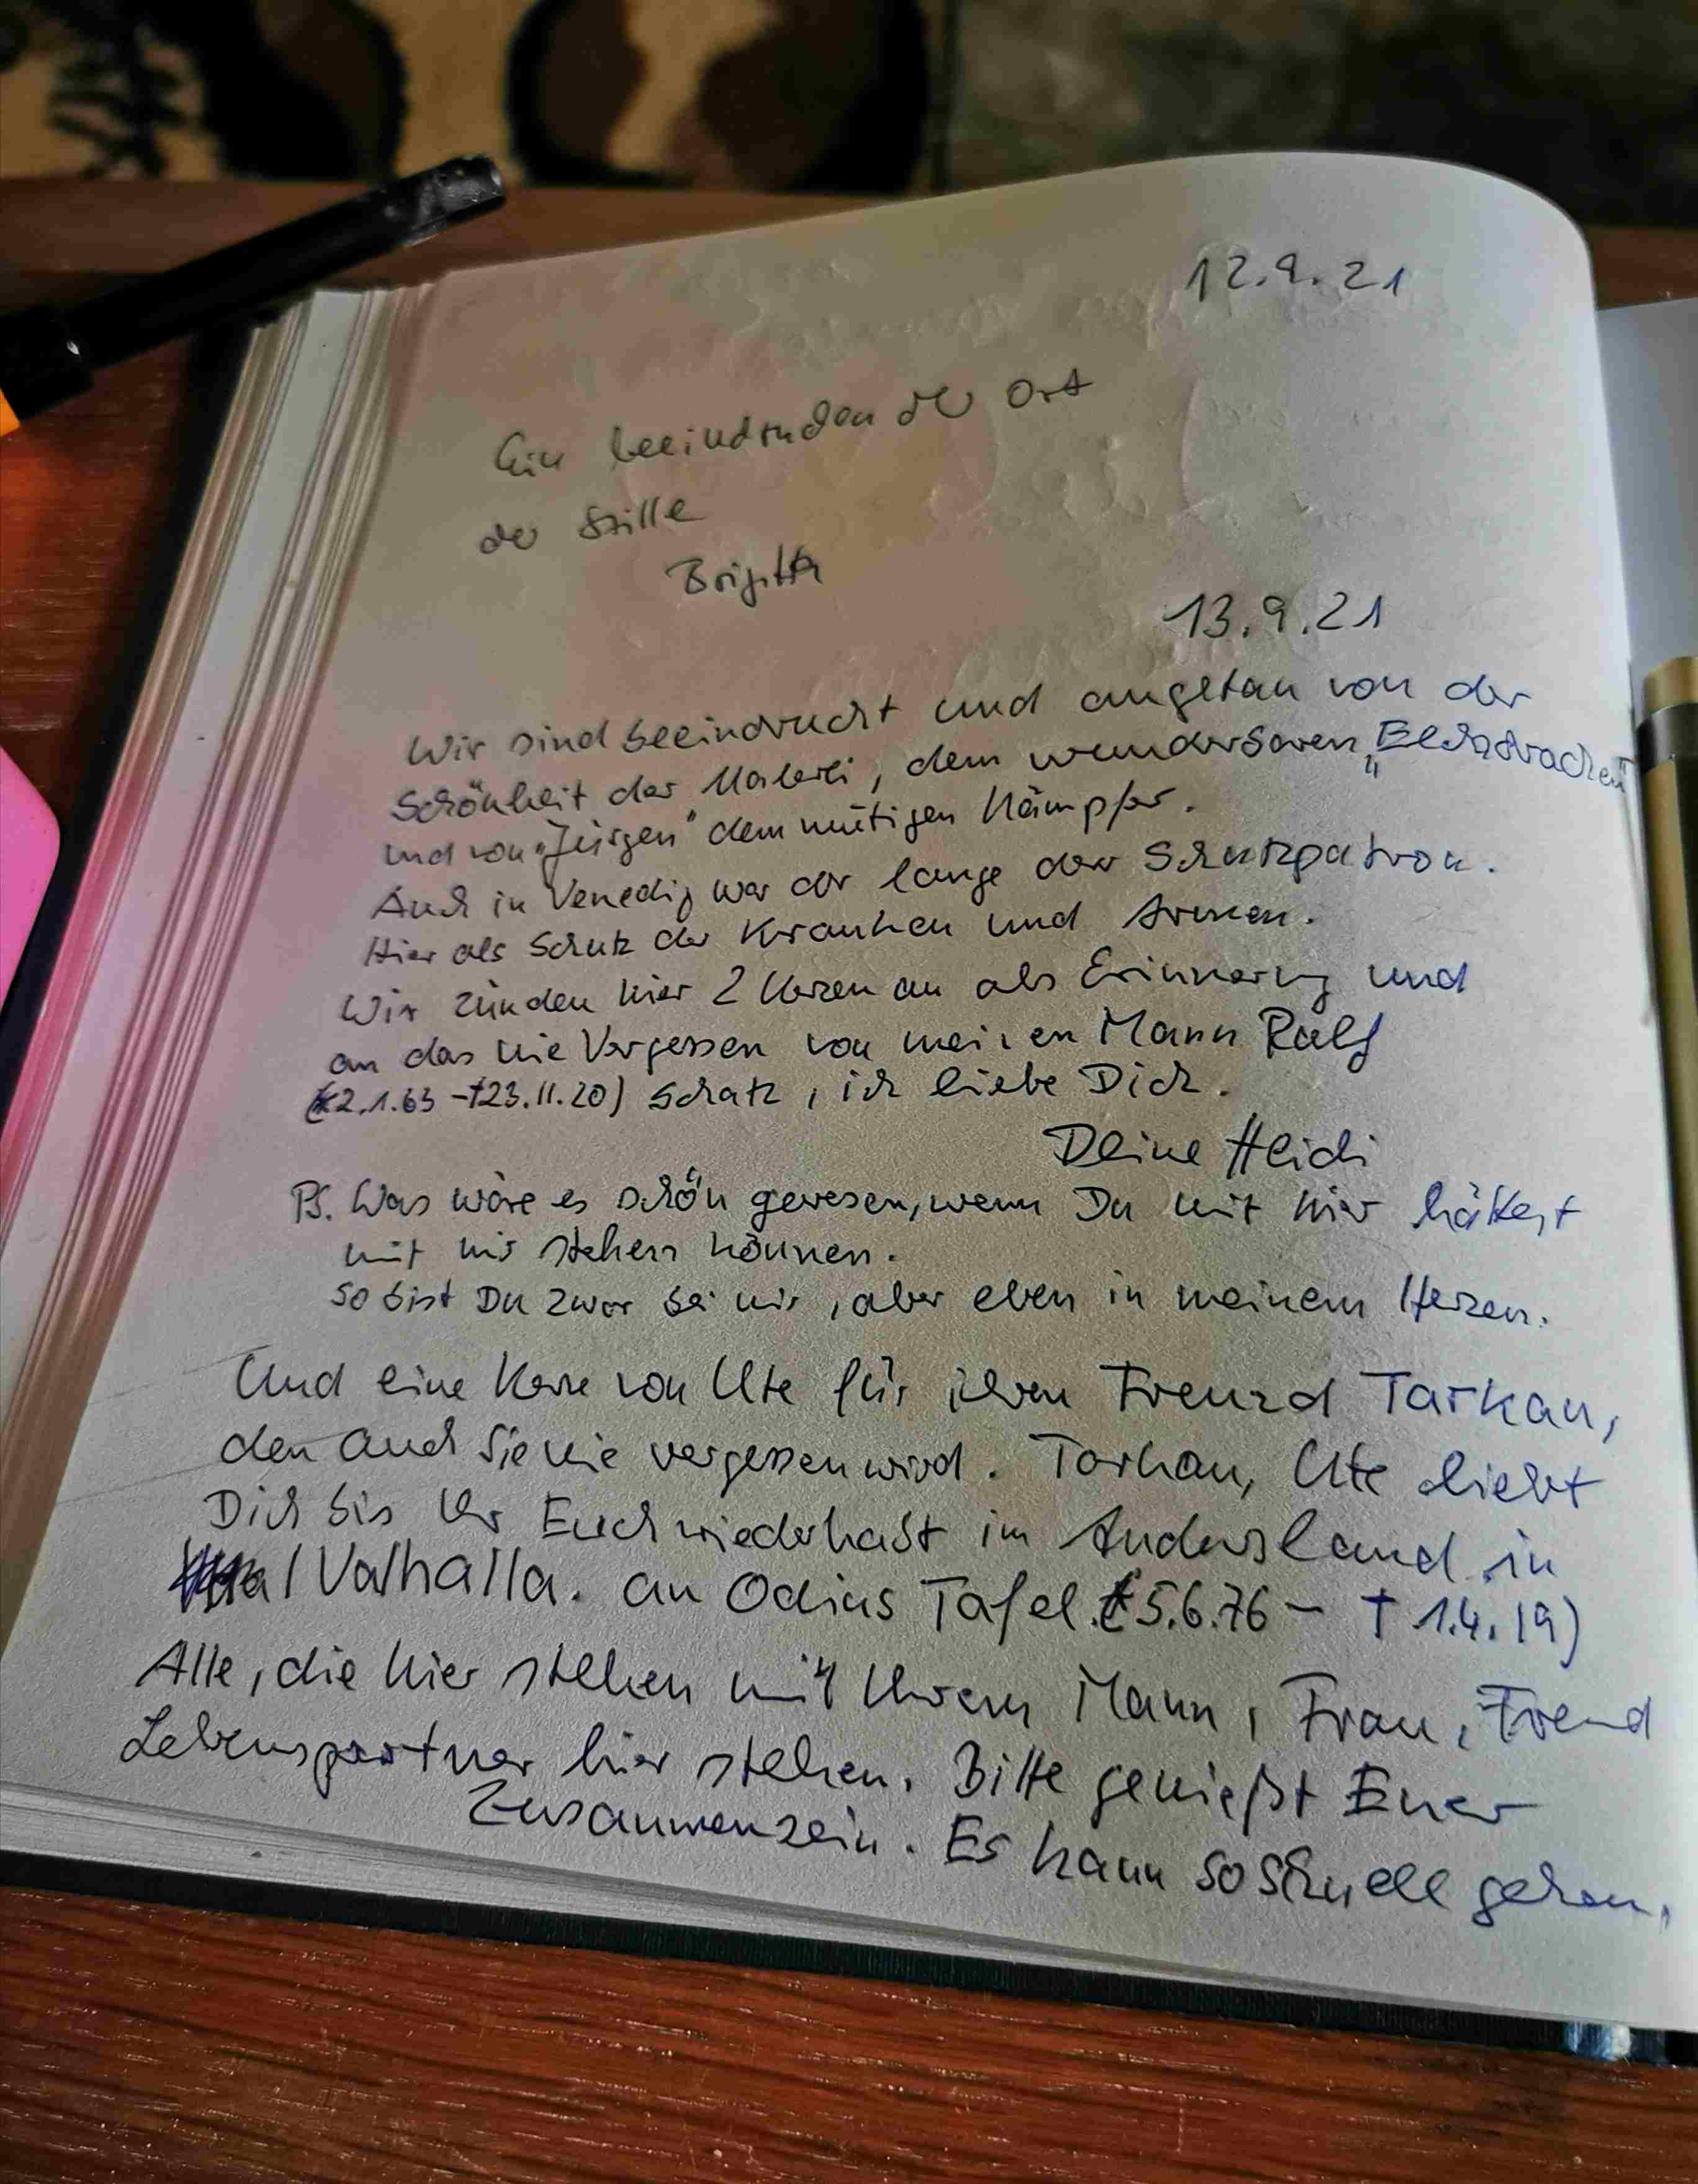 12.9.21
Ein beeindruckender Ort
der Stille
Brigitta
13.9.21
Wir sind beeindruckt und angetan von der
Schönheit der Malerei, dem wundersaren
und von "Jürgen" dem mutigen Kämpfer.
Auch in Venedig war er lange der Schutzpatron.
Hier als Schutz der Kranken und Armen.
Wir zünden hier 2 Kerzen an als Erinnerung und
an das nie Vergessen von meinen Mann Ralf
(*2.1.63 - †23.11.20) Schatz, ich liebe Dich.
Deine Heidi
PS. Was wäre es schön gewesen, wenn Du mit hier hättest
mit mir stehen können.
So bist Du zwar bei mir, aber eben in meinem Herzen.
Und eine Kerze von Ute für ihren Freund Tarkan,
den auch Sie nie vergessen wird. Tarkan, Ute liebt
Dich bis Ihr Euch wiederhabt im Andersland in
Valhalla. an Odins Tafel. (*5.6.76 - † 1.4.19)
Alle, die hier stehen mit Ihrem Mann, Frau, Freund
Lebenspartner hier stehen. Bitte genießt Euer
Zusammensein. Es kann so schnell gehen,